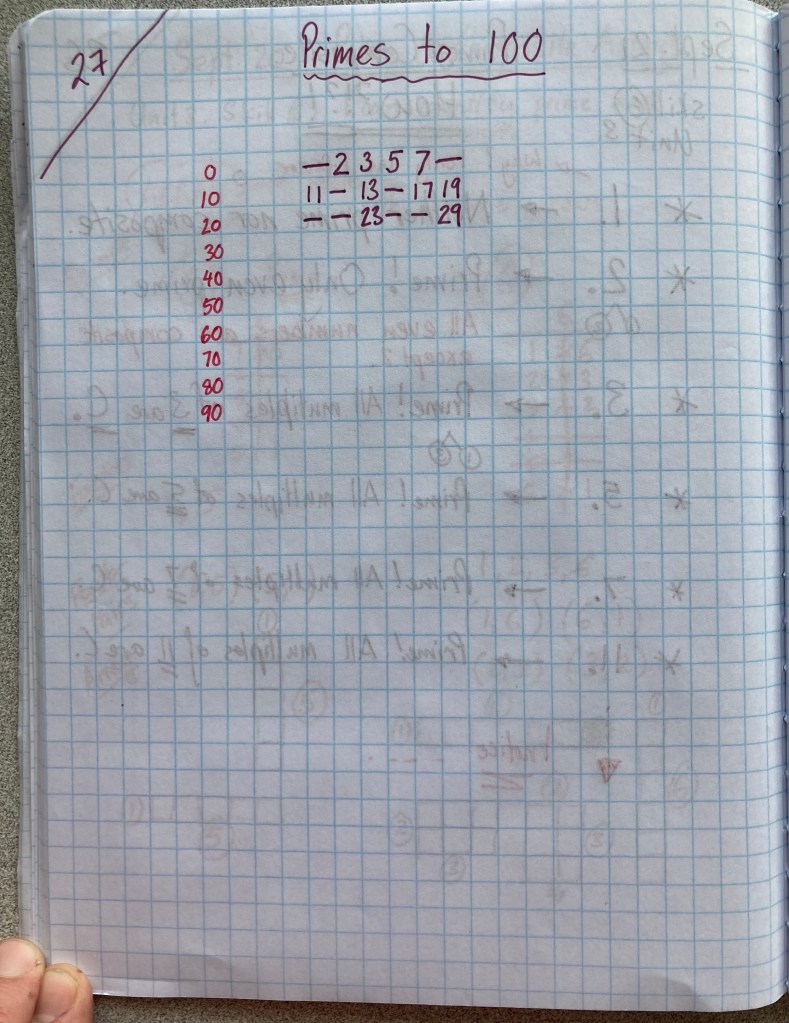 27
Primes to 100
0 — 2 3 5 7 —
10 11 — 13 — 17 19
20 — — 23 — — 29
30
40
50
60
70
80
90